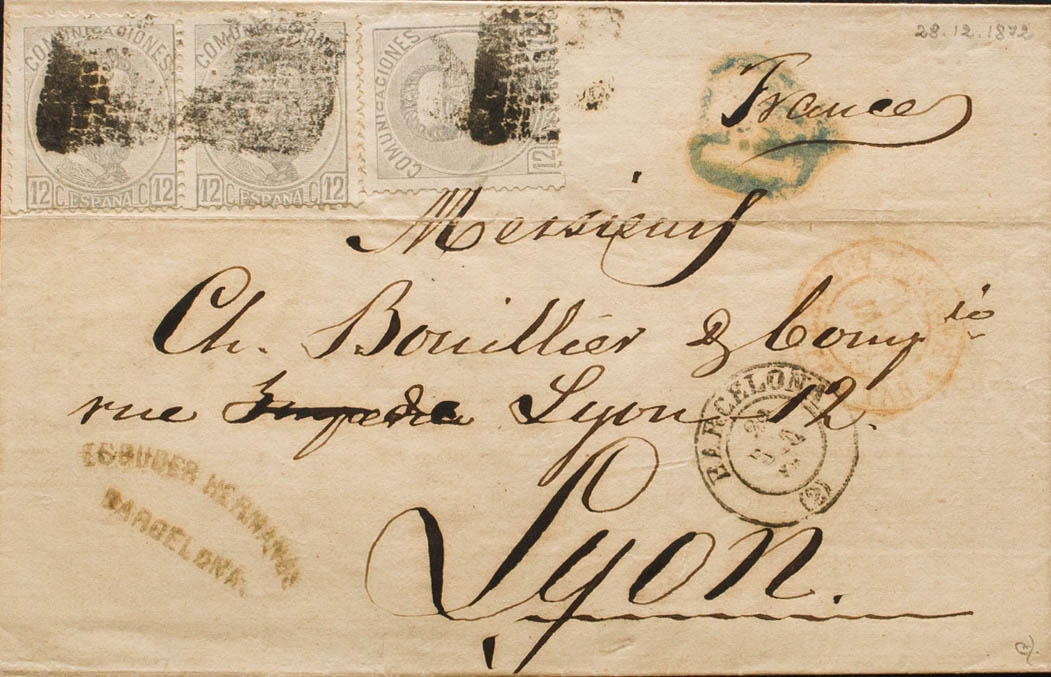 COMUNICACIONES
12 C. ESPAÑA C. 12
COMUNICACIONES
12 C. ESPAÑA C. 12
COMUNICACIONES
12
28.12.1872
France
Messieurs
Ch. Bouillier & Comp
rue Lyon 12.
BARCELONA
ESCUDER HERMANOS
BARCELONA.
Lyon.